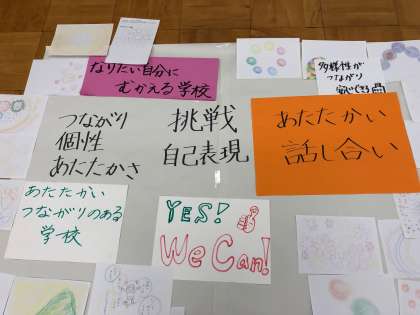 なりたい自分に
むかえる学校
多様性が
つながり
安心できる
つながり
個性
あたたかさ
挑戦
自己表現
あたたかい
話し合い
あたたかい
つながりのある
学校
YES!
We Can!